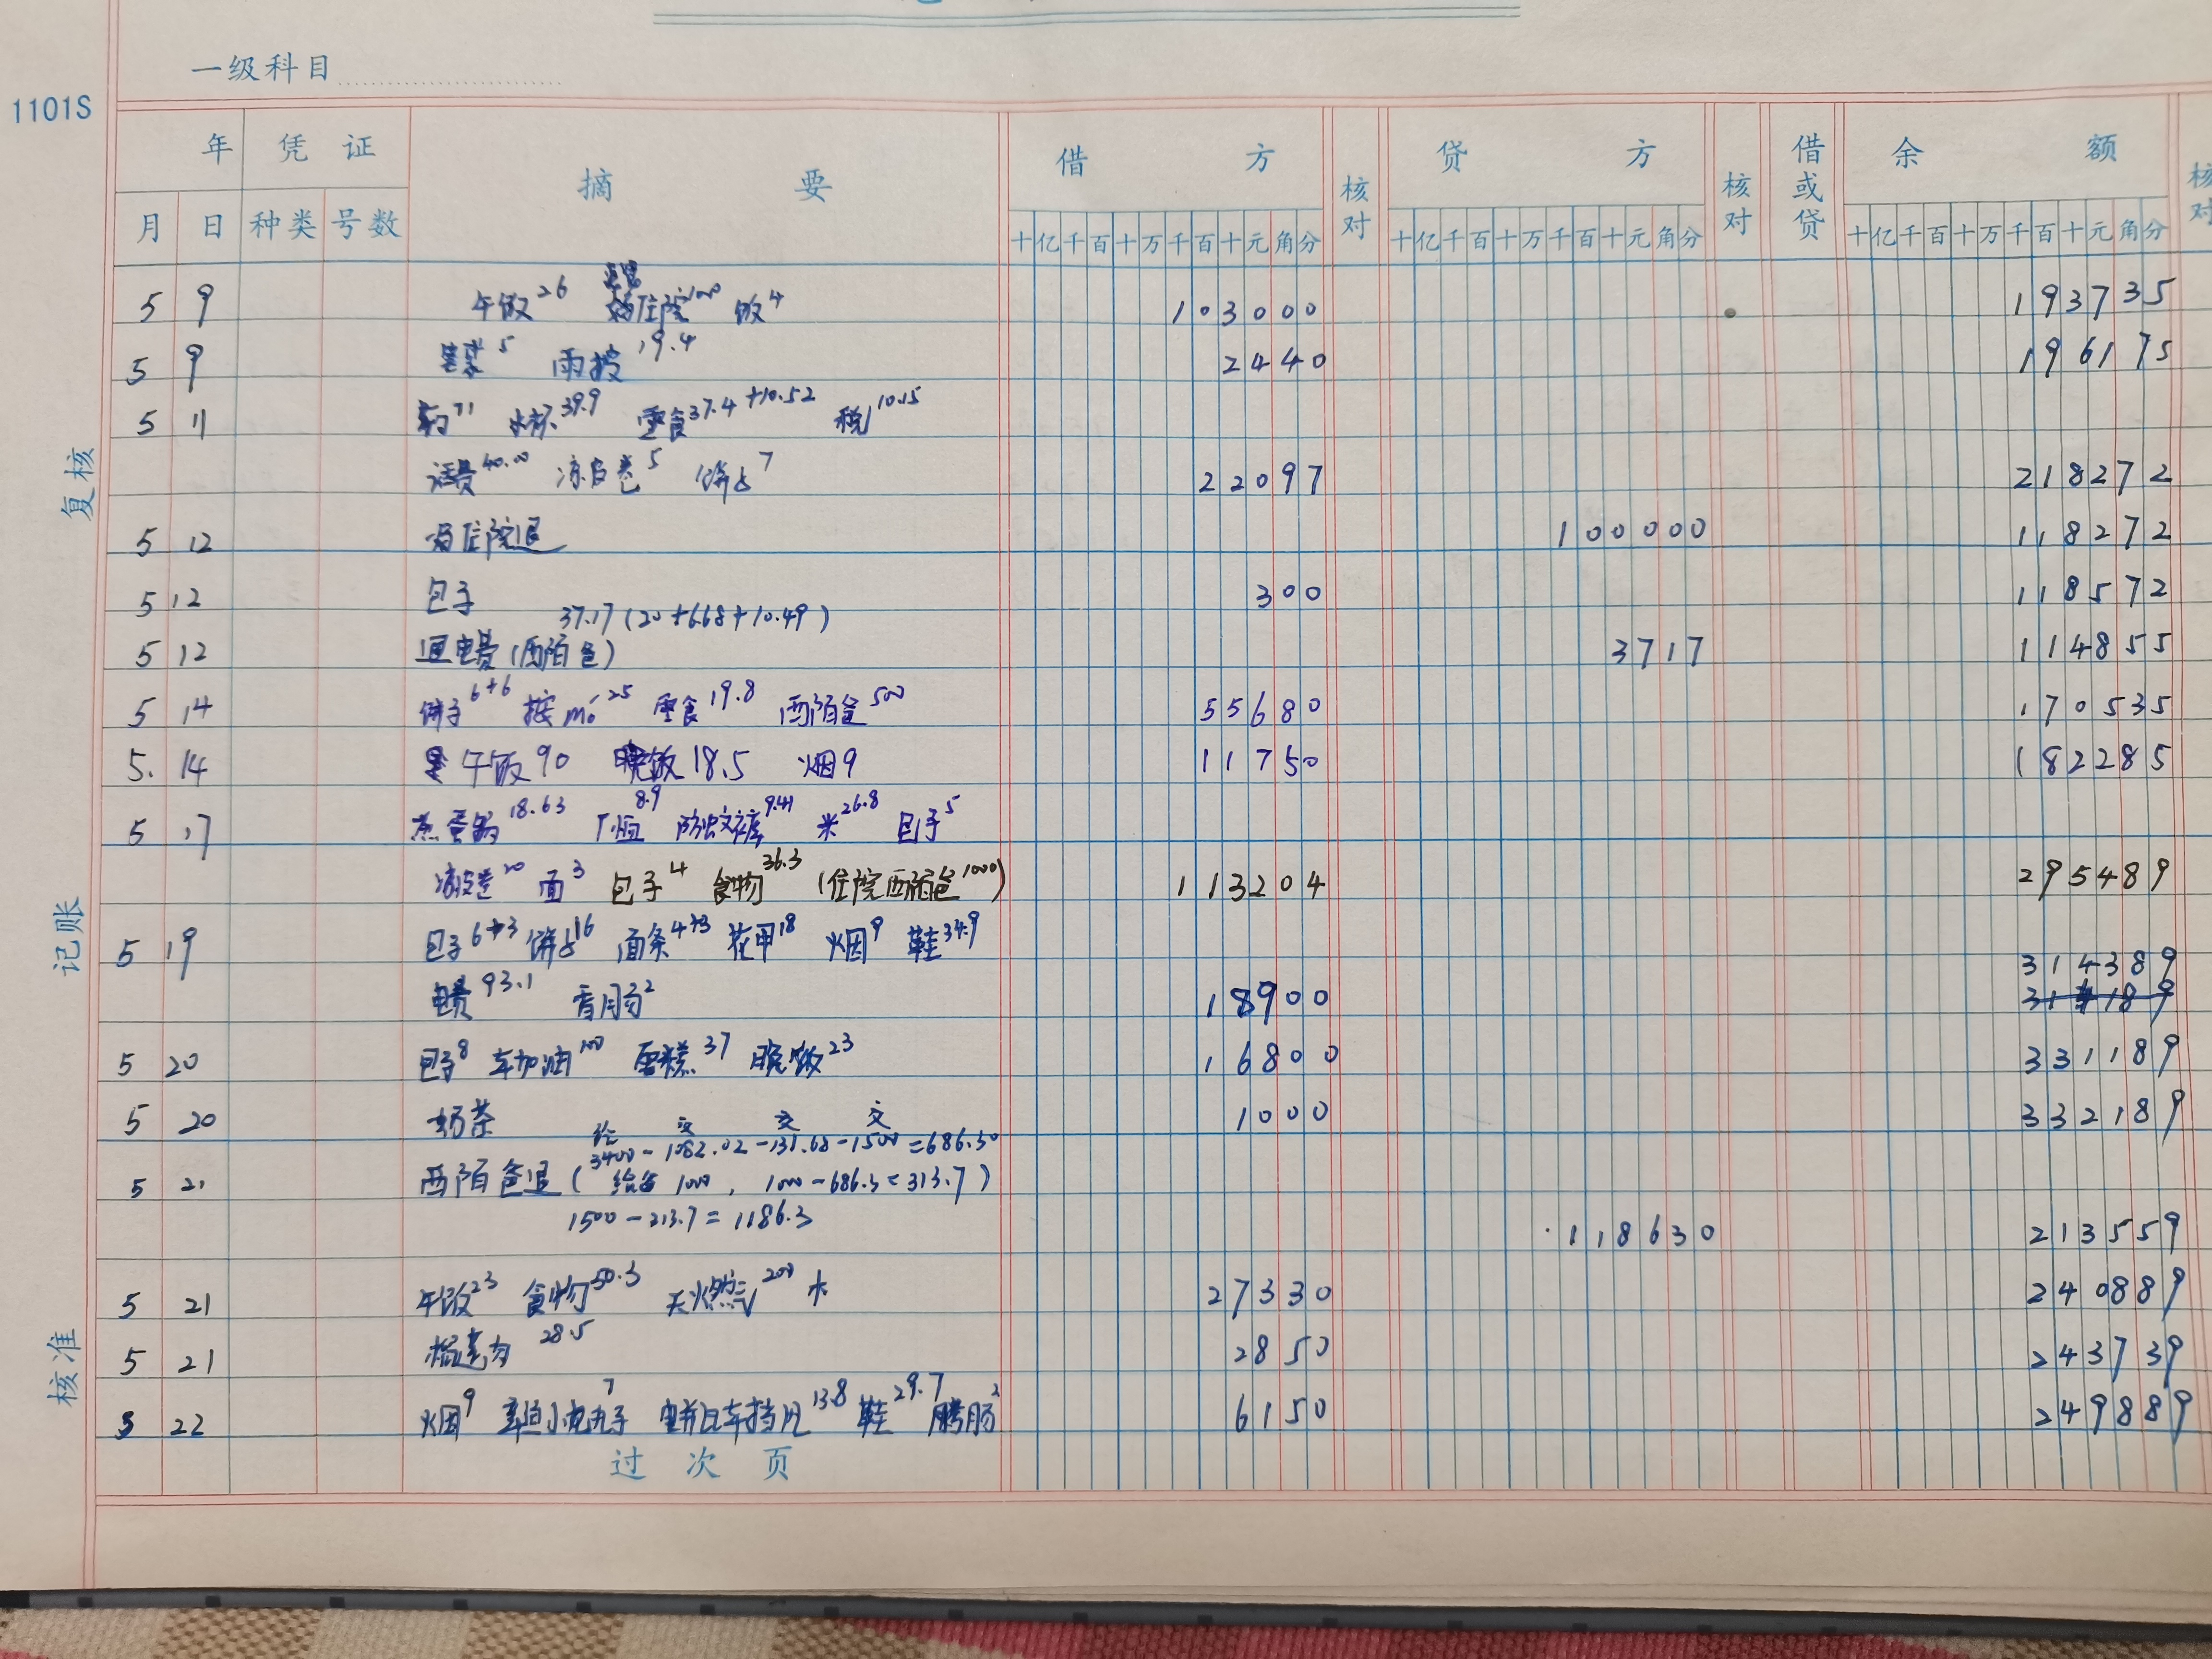 一级科目
1101S
年 凭证 摘要 借方 核对 贷方 核对 借或贷 余额 核对
月 日 种类 号数 十亿千百十万千百十元角分 十亿千百十万千百十元角分 十亿千百十万千百十元角分
5 9 午饭26 住院1000 饭4 103000 193735
5 9 5 雨披19.4 2440 196175
5 11 药71 水杯39.9 零食37.4+10.52 税10.15
话费40.00 凉皮卷5 饼子7 22097 218272
5 12 住院退 100000 118272
5 12 包子 300 118572
37.17(20+6.68+10.49)
5 12 退电费(西陌爸) 3717 114855
5 14 饼子6+6 按mó25 零食19.8 西陌爸500 55680 170535
5. 14 午饭90 晚饭18.5 烟9 11750 182285
5 17 蒸蛋器18.63 T恤8.9 防蚊裤9.41 米26.8 包子5
凉皮卷20 面3 包子4 食物36.3 (住院西陌爸1000) 113204 295489
5 19 包子6+3 饼子16 面条4+3 花甲18 烟9 鞋34.9
314389
电费93.1 香肠2 18900 314189
5 20 包子8 车加油100 蛋糕37 晚饭23 16800 331189
5 20 奶茶 1000 332189
给 交 交 交
3400-1082.02-131.68-1500=686.30
5 21 西陌爸退(给 1000, 1000-686.3=313.7)
1500-213.7=1186.3 118630 213559
5 21 午饭23 食物50.3 天燃气200 27330 240889
5 21 28.5 2850 243739
5 22 烟9 7 电并车挡风13.8 鞋29.7 肠2 6150 249889
过次页
复核
记账
核准